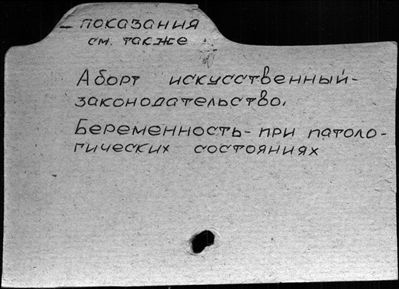 – показания
см. также
Аборт искусственный-
законодательство.
Беременность- при патоло-
гических состояниях